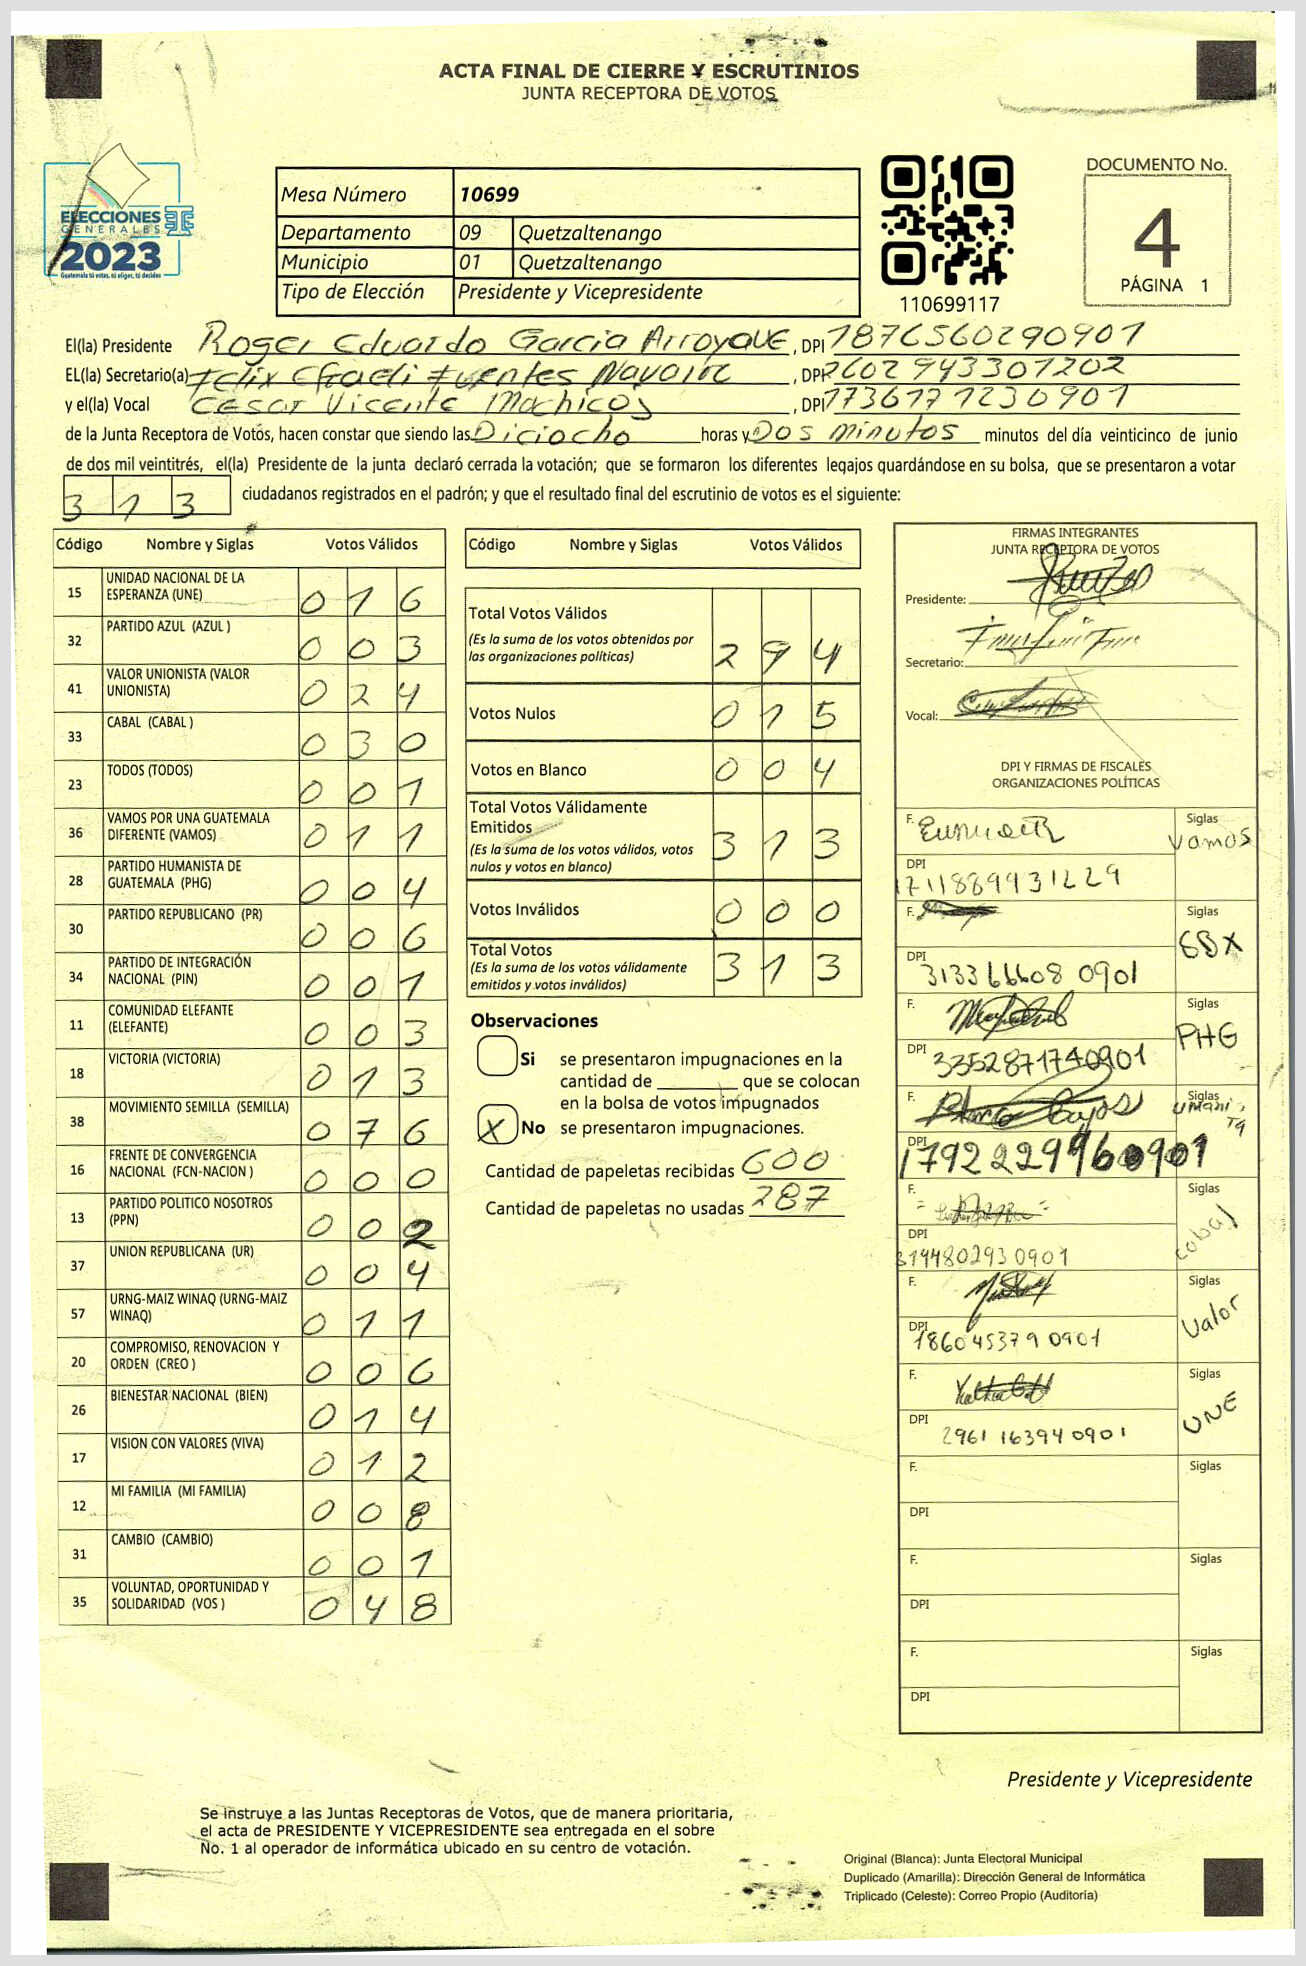 ACTA FINAL DE CIERRE Y ESCRUTINIOS
JUNTA RECEPTORA DE VOTOS
ELECCIONES
GENERALES
2023
Guatemala tú votas, tú eliges, tú decides
Mesa Número 10699
Departamento 09 Quetzaltenango
Municipio 01 Quetzaltenango
Tipo de Elección Presidente y Vicepresidente
110699117
DOCUMENTO No.
4
PÁGINA 1
El(la) Presidente Roger Eduardo Garcia Arroyave, DPI 1876560290901
EL(la) Secretario(a) Felix Efraeli Fuentes Navarro, DPI 2602943301202
y el(la) Vocal Cesar Vicente Machicos, DPI 1736171230901
de la Junta Receptora de Votos, hacen constar que siendo las Diciocho horas y Dos minutos minutos del día veinticinco de junio
de dos mil veintitrés, el(la) Presidente de la junta declaró cerrada la votación; que se formaron los diferentes legajos quardándose en su bolsa, que se presentaron a votar
3 1 3 ciudadanos registrados en el padrón; y que el resultado final del escrutinio de votos es el siguiente:
Código Nombre y Siglas Votos Válidos
15 UNIDAD NACIONAL DE LA ESPERANZA (UNE) 0 1 6
32 PARTIDO AZUL (AZUL ) 0 0 3
41 VALOR UNIONISTA (VALOR UNIONISTA) 0 2 4
33 CABAL (CABAL ) 0 3 0
23 TODOS (TODOS) 0 0 1
36 VAMOS POR UNA GUATEMALA DIFERENTE (VAMOS) 0 1 1
28 PARTIDO HUMANISTA DE GUATEMALA (PHG) 0 0 4
30 PARTIDO REPUBLICANO (PR) 0 0 6
34 PARTIDO DE INTEGRACIÓN NACIONAL (PIN) 0 0 1
11 COMUNIDAD ELEFANTE (ELEFANTE) 0 0 3
18 VICTORIA (VICTORIA) 0 1 3
38 MOVIMIENTO SEMILLA (SEMILLA) 0 7 6
16 FRENTE DE CONVERGENCIA NACIONAL (FCN-NACION ) 0 0 0
13 PARTIDO POLITICO NOSOTROS (PPN) 0 0 2
37 UNION REPUBLICANA (UR) 0 0 4
57 URNG-MAIZ WINAQ (URNG-MAIZ WINAQ) 0 1 1
20 COMPROMISO, RENOVACION Y ORDEN (CREO ) 0 0 6
26 BIENESTAR NACIONAL (BIEN) 0 1 4
17 VISION CON VALORES (VIVA) 0 1 2
12 MI FAMILIA (MI FAMILIA) 0 0 8
31 CAMBIO (CAMBIO) 0 0 1
35 VOLUNTAD, OPORTUNIDAD Y SOLIDARIDAD (VOS ) 0 4 8
Código Nombre y Siglas Votos Válidos
Total Votos Válidos 2 9 4
(Es la suma de los votos obtenidos por
las organizaciones políticas)
Votos Nulos 0 1 5
Votos en Blanco 0 0 4
Total Votos Válidamente
Emitidos 3 1 3
(Es la suma de los votos válidos, votos
nulos y votos en blanco)
Votos Inválidos 0 0 0
Total Votos 3 1 3
(Es la suma de los votos válidamente
emitidos y votos inválidos)
Observaciones
Si se presentaron impugnaciones en la
cantidad de ________ que se colocan
en la bolsa de votos impugnados
X No se presentaron impugnaciones.
Cantidad de papeletas recibidas 600
Cantidad de papeletas no usadas 287
FIRMAS INTEGRANTES
JUNTA RECEPTORA DE VOTOS
Presidente:
Secretario:
Vocal:
DPI Y FIRMAS DE FISCALES
ORGANIZACIONES POLÍTICAS
F. Siglas Vamos
DPI 1711889931229
F. Siglas
DPI 313366608 0901
F. Siglas PHG
DPI 3352871740901
F. Siglas
DPI 1792229960901
F. Siglas Cabal
DPI 319480293 0901
F. Siglas Valor
DPI 186045379 0901
F. Siglas UNE
DPI 2961 16394 0901
F. Siglas
DPI
F. Siglas
DPI
F. Siglas
DPI
Presidente y Vicepresidente
Se instruye a las Juntas Receptoras de Votos, que de manera prioritaria,
el acta de PRESIDENTE Y VICEPRESIDENTE sea entregada en el sobre
No. 1 al operador de informática ubicado en su centro de votación.
Original (Blanca): Junta Electoral Municipal
Duplicado (Amarilla): Dirección General de Informática
Triplicado (Celeste): Correo Propio (Auditoría)